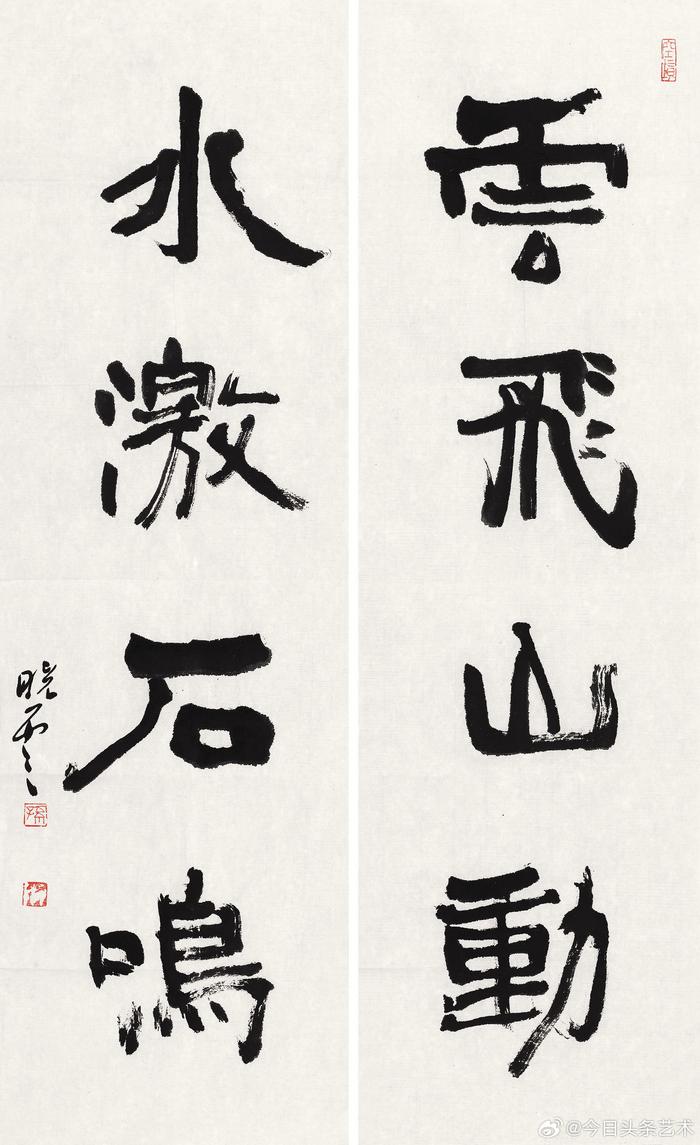 雲飛山動
水激石鳴
曉雲
@今日头条艺术